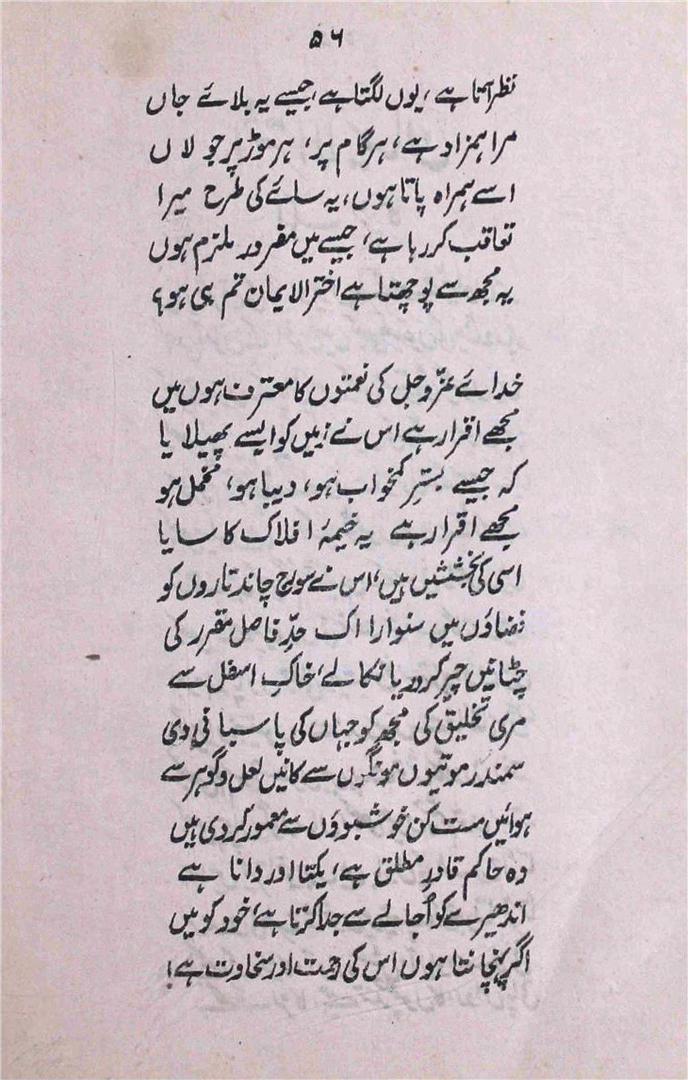 ۵۶
نظر آتا ہے، یوں لگتا ہے، جیسے یہ بلائے جاں
مرا ہمزاد ہے، ہر گام پر، ہر موڑ پر جولاں
اسے ہمراہ پاتا ہوں، یہ سائے کی طرح میرا
تعاقب کر رہا ہے، جیسے میں مفرور ملزم ہوں
یہ مجھ سے پوچھتا ہے اختر الایمان تم ہی ہو؟
خدائے عزّ و جل کی نعمتوں کا معترف ہوں میں
مجھے اقرار ہے اس نے زمیں کو ایسے پھیلایا
کہ جیسے بسترِ کمخواب ہو، دیبا ہو، مخمل ہو
مجھے اقرار ہے یہ خیمۂ افلاک کا سایا
اسی کی بخششیں ہیں، اس نے سورج چاند تاروں کو
فضاؤں میں سنوارا اک حدِّ فاصل مقرر کی
چٹانیں چیر کر دریا نکالے، خاکِ اسفل سے
مری تخلیق کی مجھ کو جہاں کی پاسبانی دی
سمندر موتیوں مونگوں سے کانیں لعل و گوہر سے
ہوائیں مست کن خوشبوؤں سے معمور کر دی ہیں
وہ حاکم قادرِ مطلق ہے، یکتا اور دانا ہے
اندھیرے کو اُجالے سے جدا کرتا ہے، خود کو میں
اگر پہنچانتا ہوں اس کی رحمت اور سخاوت ہے!